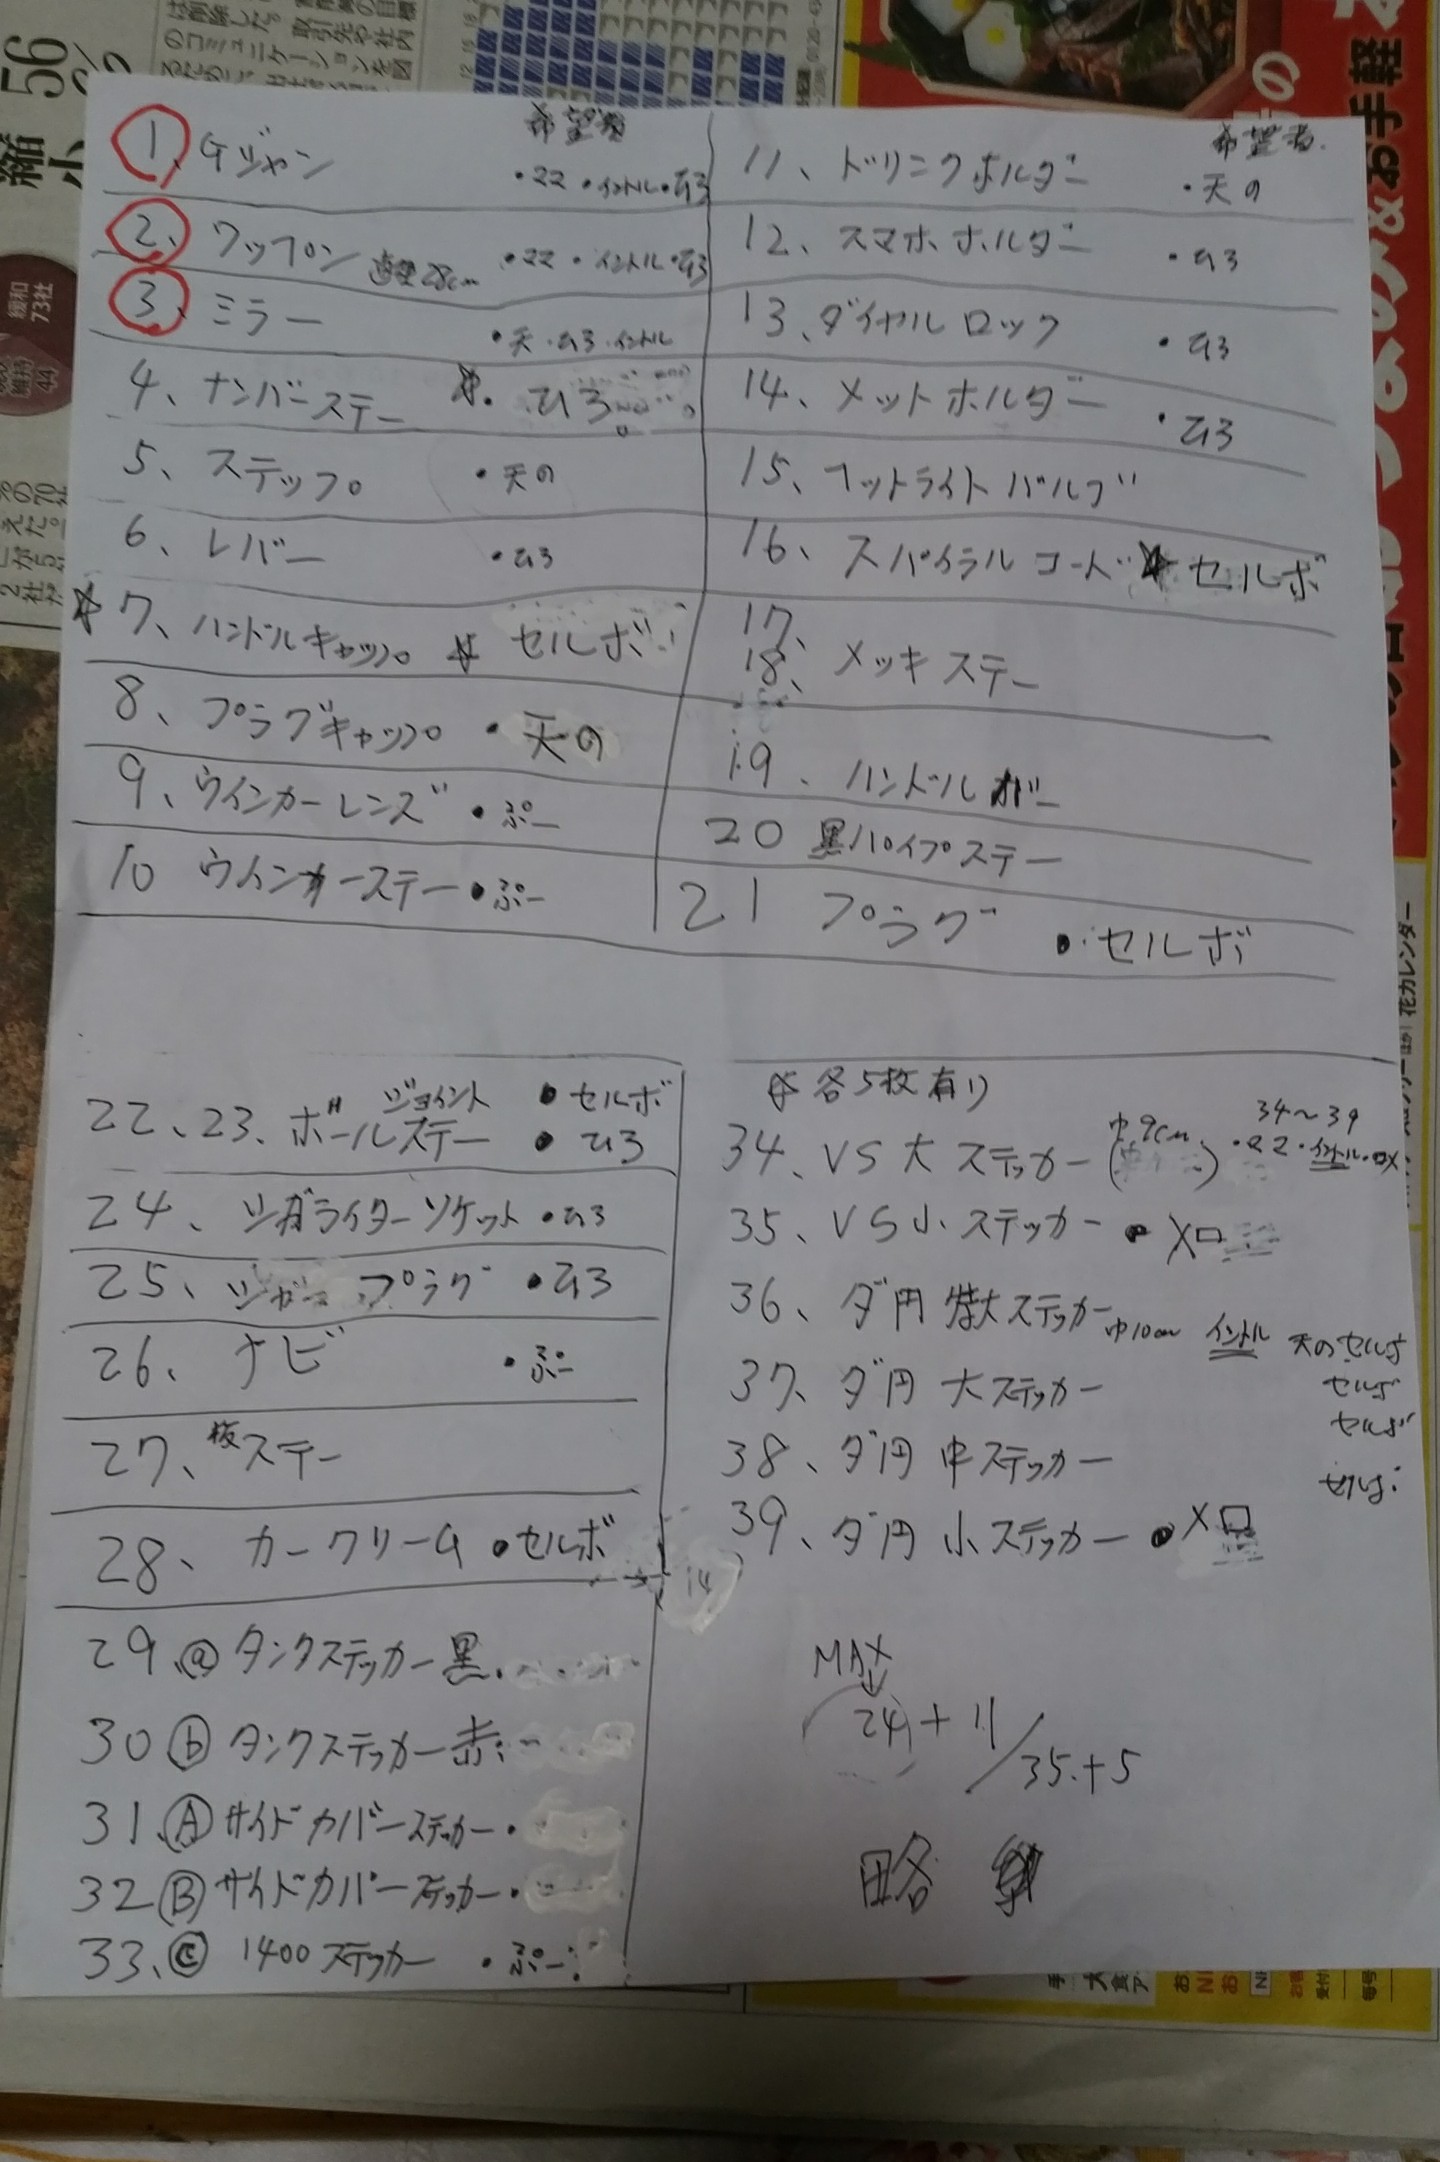 希望者
1、Gジャン ・ママ ・イントル・ひろ
2、ワッペン 直径28cm ・ママ ・イントル・ひろ
3、ミラー ・天・ひろ・イントル
4、ナンバーステー ☆・ひろ。
5、ステップ ・天の
6、レバー ・ひろ
☆7、ハンドルキャップ ☆ セルボ
8、プラグキャップ ・天の
9、ウインカーレンズ ・ぷー
10 ウインカーステー ・ぷー
希望者.
11、ドリンクホルダー ・天の
12、スマホホルダー ・ひろ
13、ダイヤルロック ・ひろ
14、メットホルダー ・ひろ
15、ヘットライトバルブ
16、スパイラルコード ☆ セルボ
17、
18、メッキステー
19、ハンドルバー
20 黒パイプステー
21 プラグ ・セルボ
22、23、ボールジョイントステー ・セルボ
・ひろ
24、シガライターソケット ・ひろ
25、シガープラグ ・ひろ
26、ナビ ・ぷー
27、板ステー
28、カークリーム ・セルボ
14
29、ⓐタンクステッカー黒・
30 ⓑタンクステッカー赤・
31、Ⓐサイドカバーステッカー・
32 Ⓑサイドカバーステッカー・
33、Ⓒ 1400ステッカー ・ぷー
☆各5枚有り
34〜39
34、VS大ステッカー 巾9cm ・ママ・イントル・ロメ
35、VS小ステッカー ・メロ
36、ダ円特大ステッカー 巾10cm イントル 天の セルボ
37、ダ円大ステッカー セルボ
38、ダ円中ステッカー セルボ
セルボ
39、ダ円小ステッカー ・メロ
MAX
↓
24+11/35+5
略